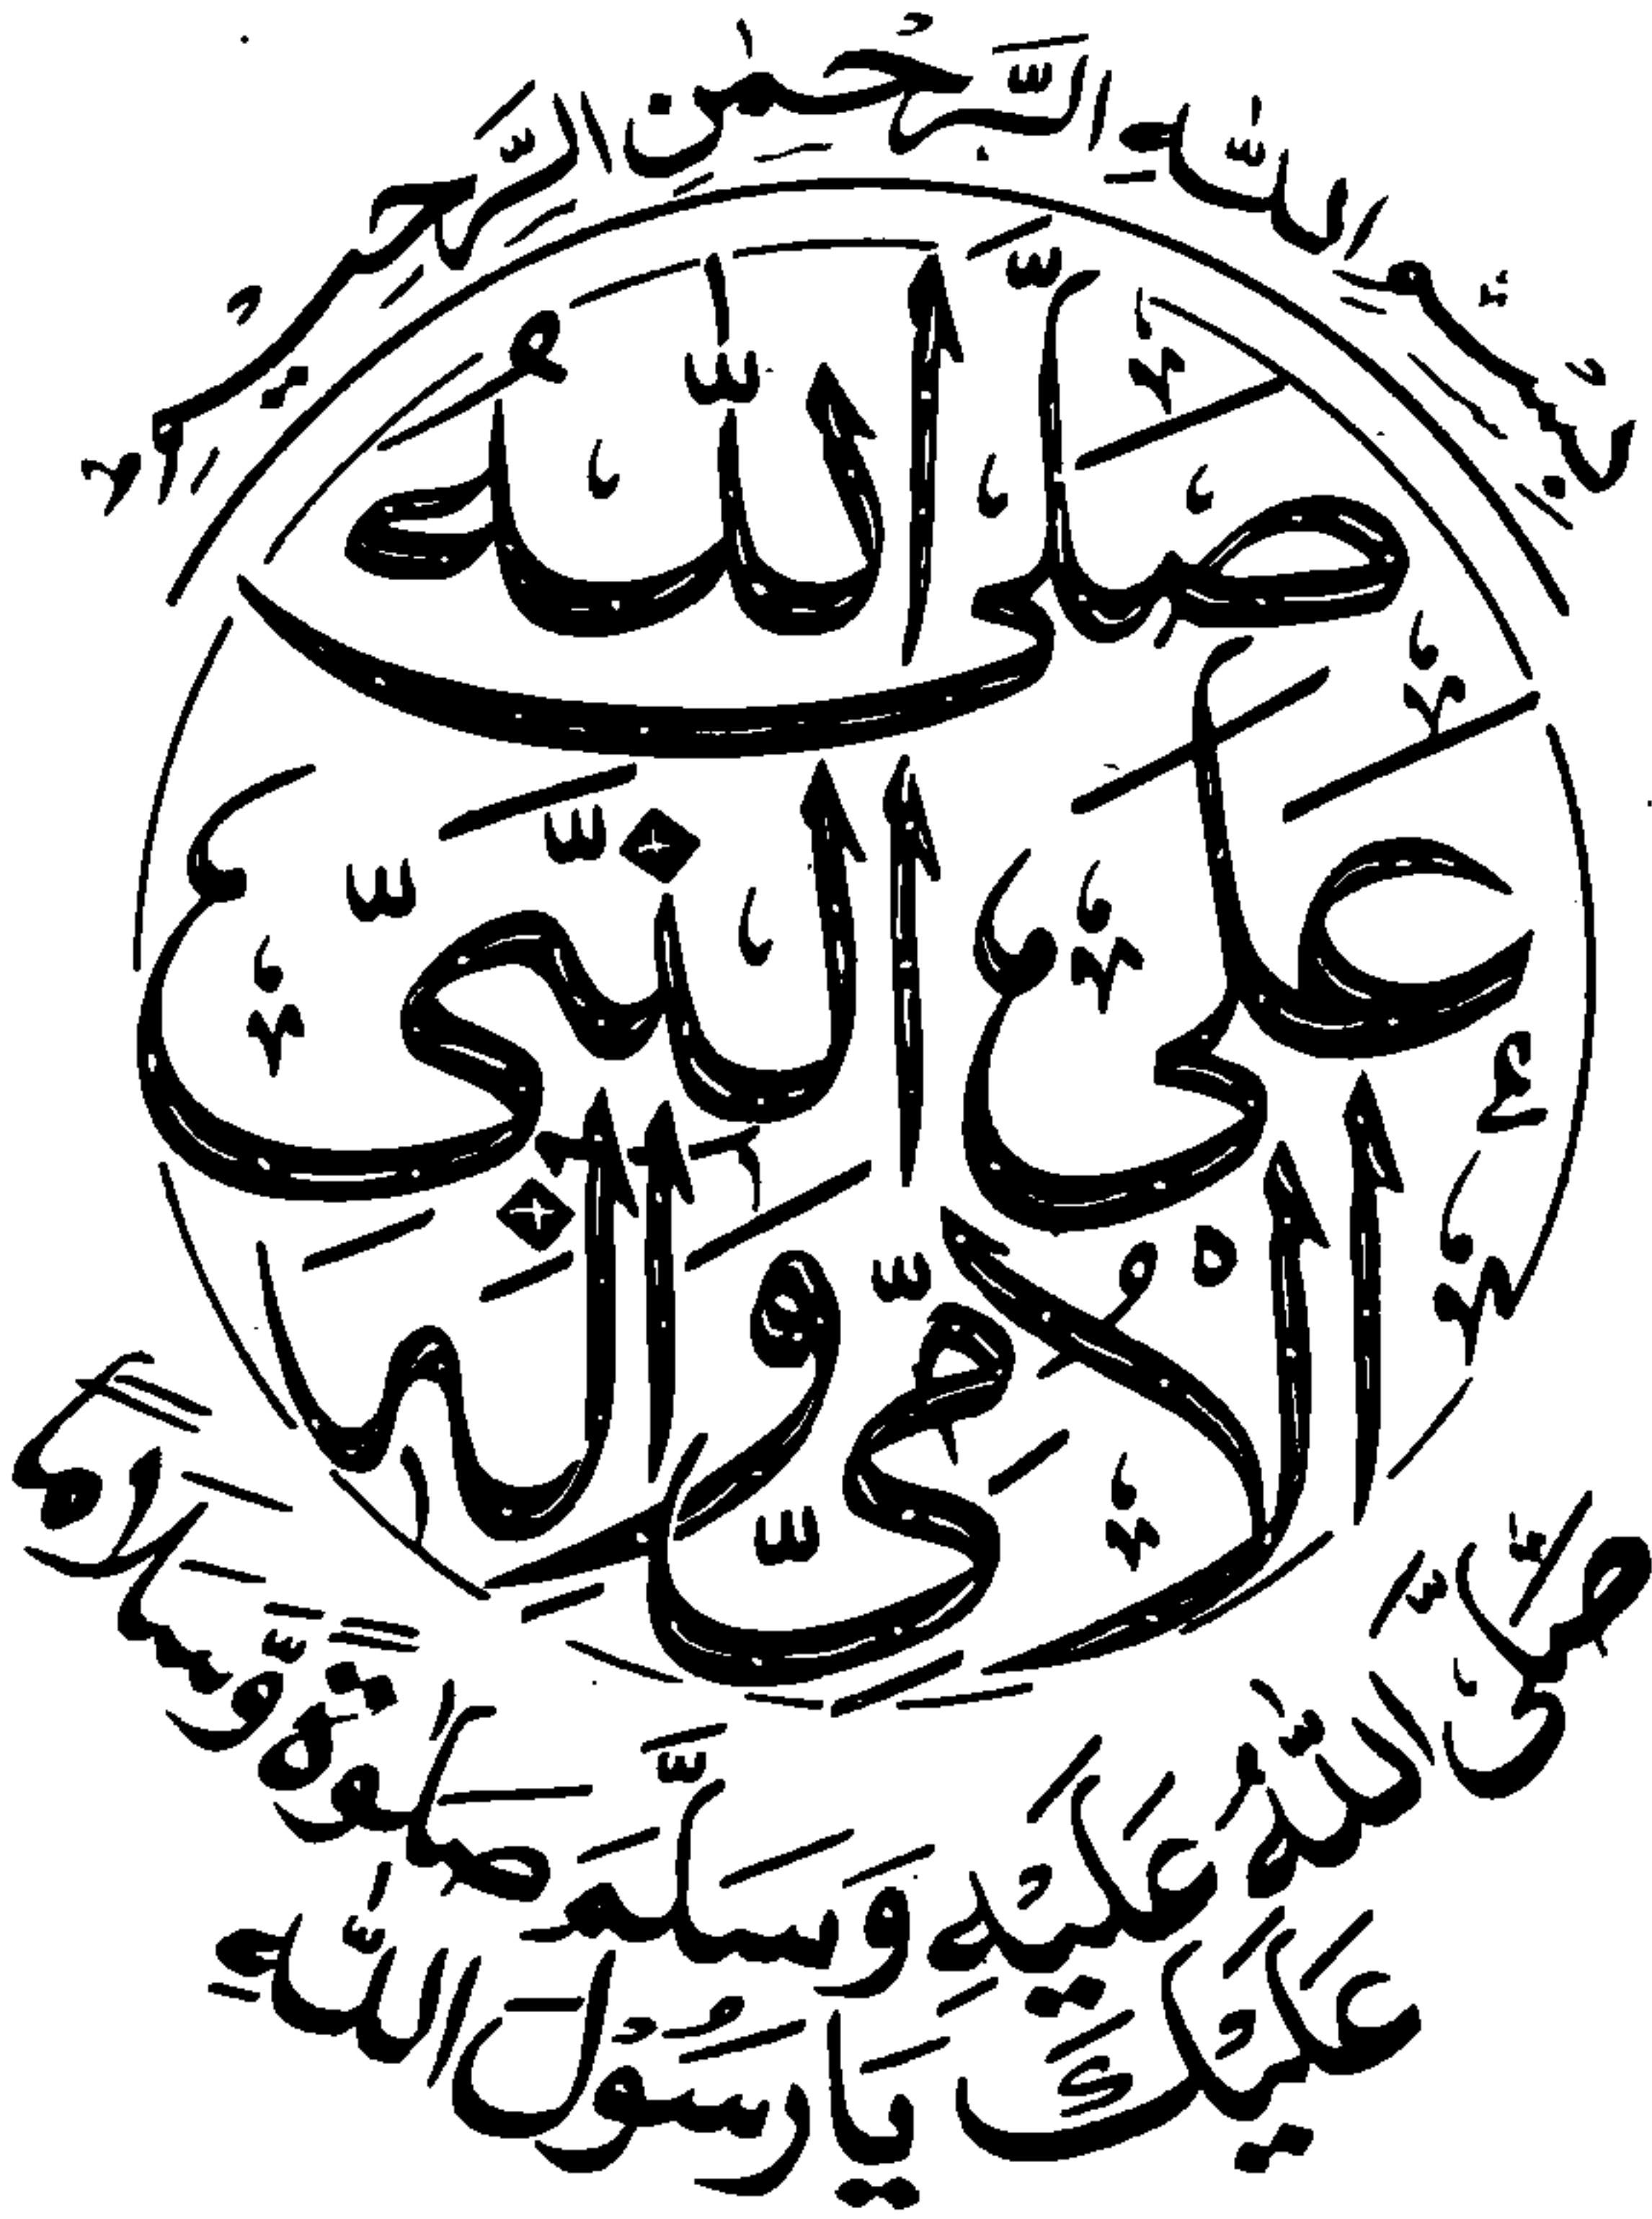 بِسْمِ اللّٰهِ الرَّحْمٰنِ الرَّحِيْمِ
صَلَّى اللّٰهُ
عَلَى النَّبِيِّ
الْأُمِّيِّ وَاٰلِهٖ
صَلَّى اللّٰهُ عَلَيْهِ وَسَلَّمَ صَلٰوةً وَّسَلَامًا
عَلَيْكَ يَا رَسُوْلَ اللّٰهِ